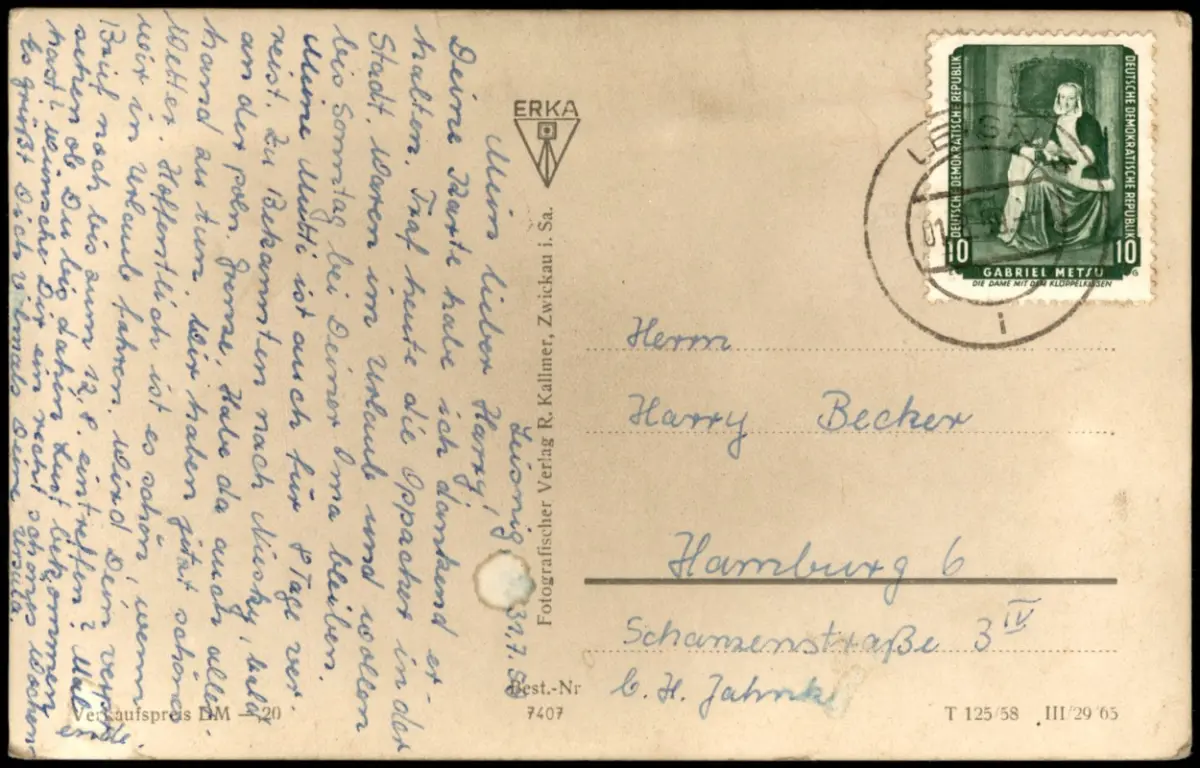 Leisnig 31.7.59
Mein lieber Harry!
Deine Karte habe ich dankend er-
halten. Traf heute die Oppacker in der
Stadt. Waren im Urlaub und wollen
bis Sonntag bei Deiner Oma bleiben.
Meine Mutti ist auch für 8 Tage ver-
reist. Zu Bekannten nach Niesky, bald
an der poln. Grenze. Habe da auch aller-
hand zu tun. Wir haben jetzt schönes
Wetter. Hoffentlich ist es schön, wenn
wir in Urlaub fahren. Wird Dein versproch.
Brief noch bis zum 12.8. eintreffen? Mal
sehen ob Du bis dahin Lust bekommen
hast? Wünsche Dir ein recht schönes Wochenende
Es grüßt Dich vielmals Deine Ursula.
ERKA
Fotografischer Verlag R. Kallmer, Zwickau i. Sa.
DEUTSCHE DEMOKRATISCHE REPUBLIK
DEUTSCHE DEMOKRATISCHE REPUBLIK
10 10
GABRIEL METSU
DIE DAME MIT DEM KLÖPPELKISSEN
i
Herrn
Harry Becker
Hamburg 6
Schanzenstraße 3 IV
b. H. Jahnke
Verkaufspreis DM –.20
Best.-Nr
7407
T 125/58 III/29 65